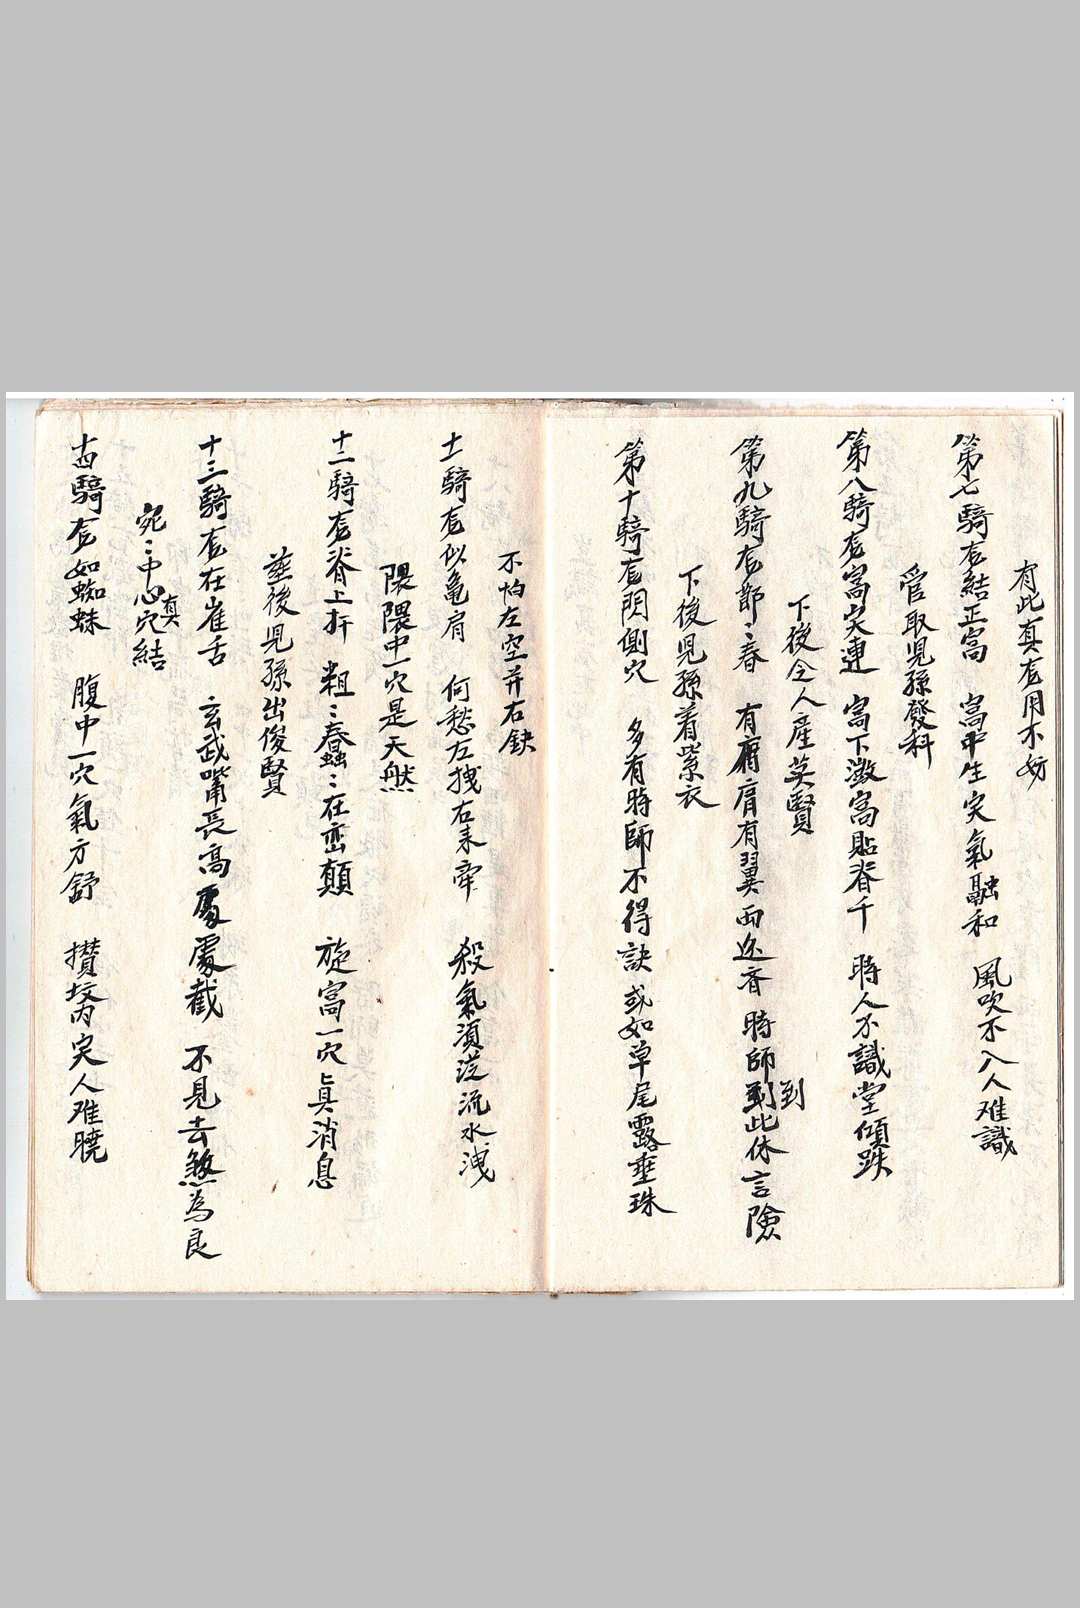 有此真龙用不妨
第七騎龙結正窩　窩中生突氣融和　風吹不入人难識
管取児孫發科
第八騎龙窩突連　窩下微窩貼脊千　時人不識堂傾跌
下後令人產英賢
第九騎龙節〻春　有肩有翼两边齐　時師到此休言險
到
下後児孫着紫衣
第十騎龙閃側穴　多有時師不得訣　或如草尾露垂珠
不怕左空并右缺
十一騎龙似亀肩　何愁左拽右来牽　殺氣須從流水洩
隈隈中一穴是天然
十二騎龙脊上扦　粗〻蠢〻在巒顛　旋窩一穴眞消息
塟後児孫出俊賢
十三騎龙在雀舌　玄武嘴長高處處截　不見去煞為良
宛〻中心真穴結
十四騎龙如蜘蛛　腹中一穴氣方舒　攢坟內突人难曉